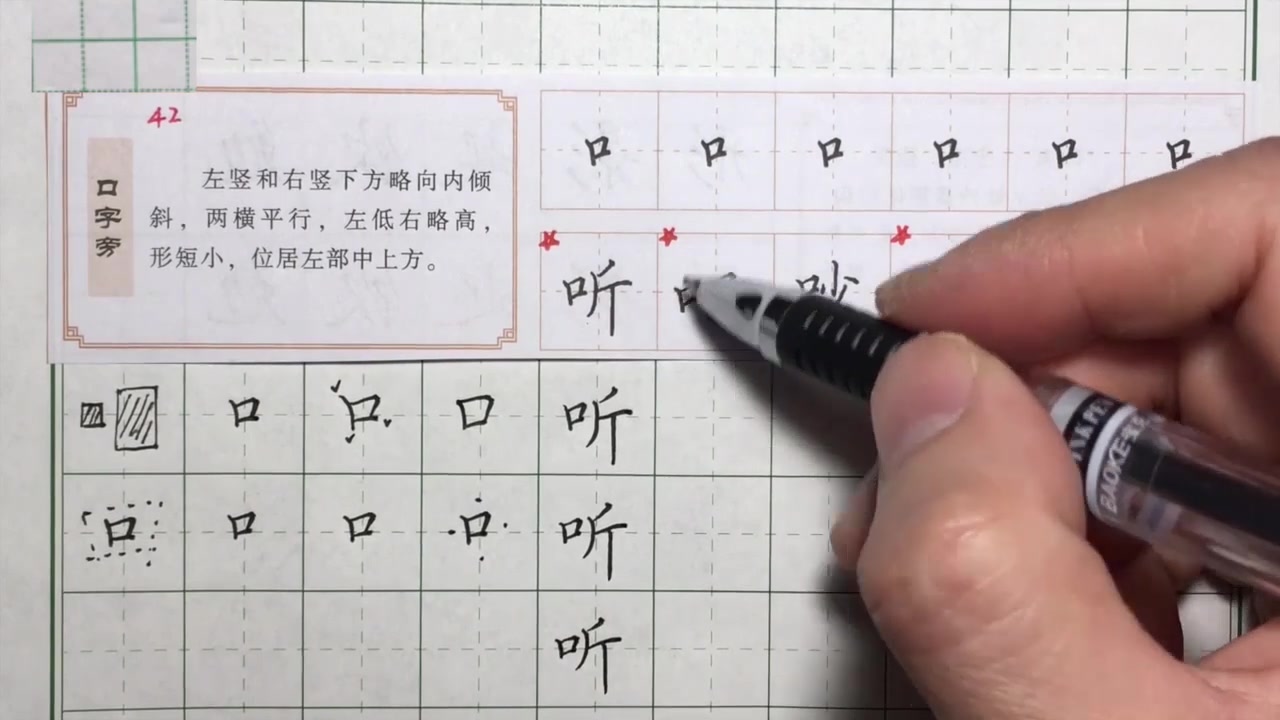 42
口字旁
左竖和右竖下方略向内倾
斜，两横平行，左低右略高，
形短小，位居左部中上方。
口 口 口 口 口 口
听 吵
口 口 口 听
口 口 口 口 听
听
BAOKE